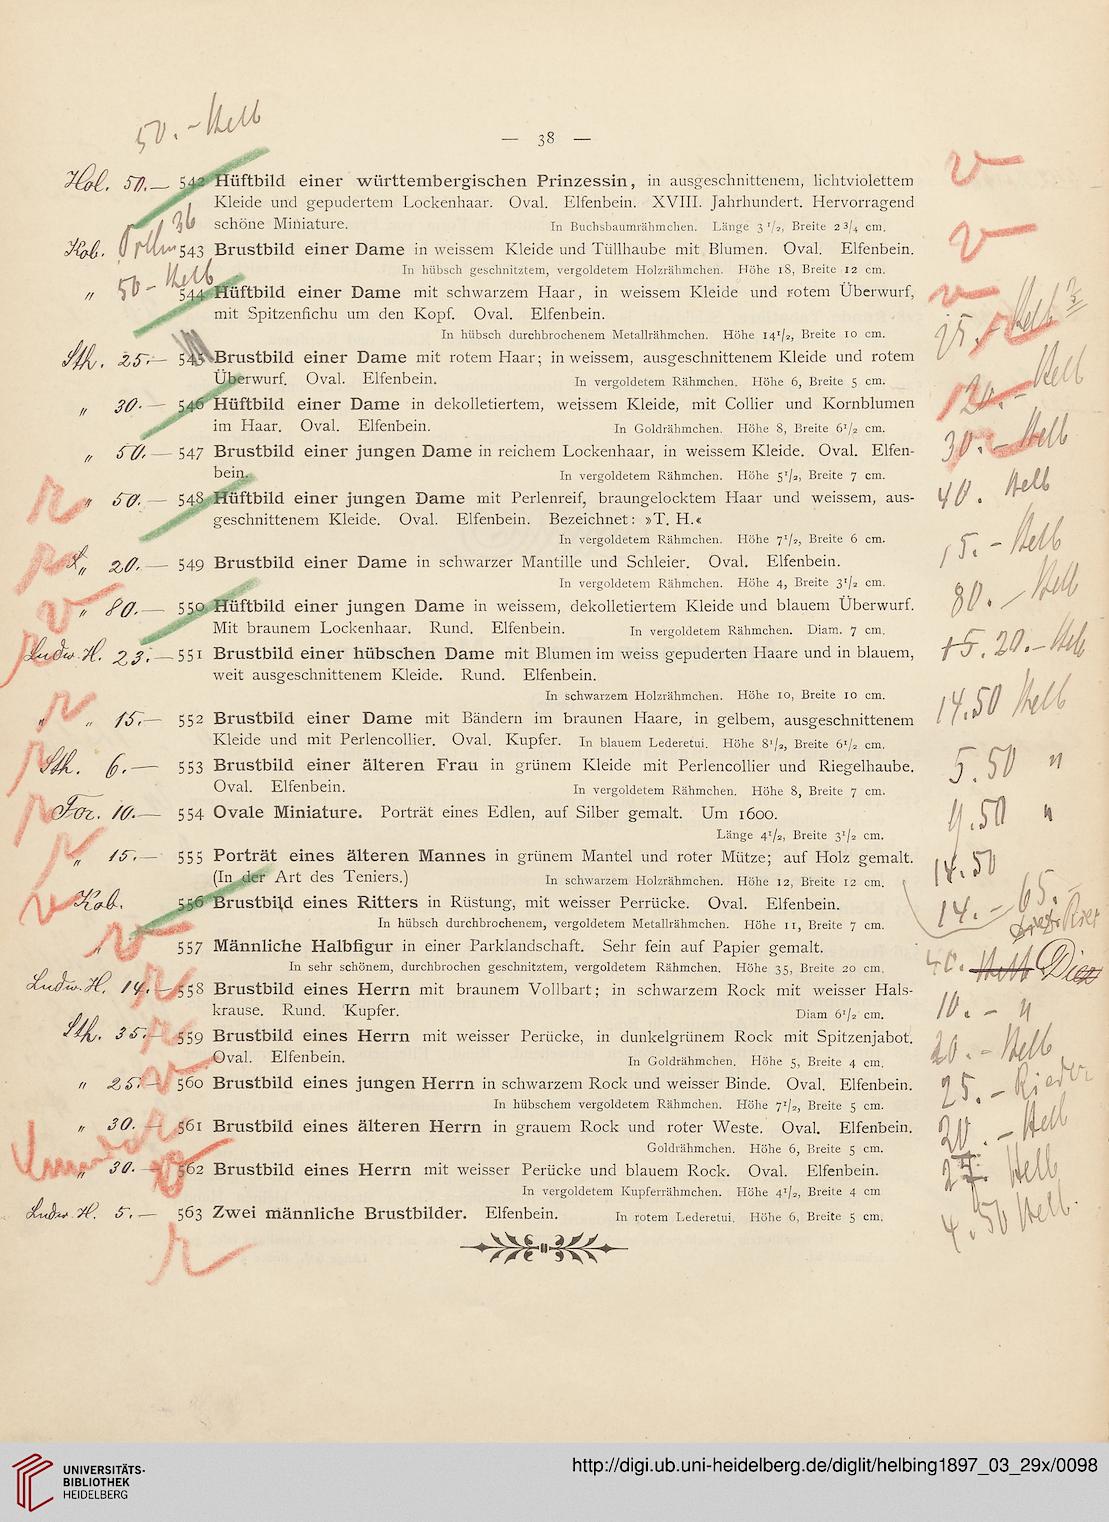 50.- Helb
— 38 —
Hol. 50.— 542 Hüftbild einer württembergischen Prinzessin, in ausgeschnittenem, lichtviolettem
Kleide und gepudertem Lockenhaar. Oval. Elfenbein. XVIII. Jahrhundert. Hervorragend
schöne Miniature. In Buchsbaumrähmchen. Länge 3 1/2, Breite 2 3/4 cm.
36
Kob. 543 Brustbild einer Dame in weissem Kleide und Tüllhaube mit Blumen. Oval. Elfenbein.
In hübsch geschnitztem, vergoldetem Holzrähmchen. Höhe 18, Breite 12 cm.
50 - Helb
" 544 Hüftbild einer Dame mit schwarzem Haar, in weissem Kleide und rotem Überwurf,
mit Spitzenfichu um den Kopf. Oval. Elfenbein.
In hübsch durchbrochenem Metallrähmchen. Höhe 14 1/2, Breite 10 cm.
Sth. 25.— 545 Brustbild einer Dame mit rotem Haar; in weissem, ausgeschnittenem Kleide und rotem
Überwurf. Oval. Elfenbein. In vergoldetem Rähmchen. Höhe 6, Breite 5 cm.
" 30.— 546 Hüftbild einer Dame in dekolletiertem, weissem Kleide, mit Collier und Kornblumen
im Haar. Oval. Elfenbein. In Goldrähmchen. Höhe 8, Breite 6 1/2 cm.
30.- Helb
" 50.— 547 Brustbild einer jungen Dame in reichem Lockenhaar, in weissem Kleide. Oval. Elfen-
bein. In vergoldetem Rähmchen. Höhe 5 1/2, Breite 7 cm.
" 50.— 548 Hüftbild einer jungen Dame mit Perlenreif, braungelocktem Haar und weissem, aus- 40. Helb
geschnittenem Kleide. Oval. Elfenbein. Bezeichnet: »T. H.«
In vergoldetem Rähmchen. Höhe 7 1/2, Breite 6 cm.
" 20.— 549 Brustbild einer Dame in schwarzer Mantille und Schleier. Oval. Elfenbein. 15.- Helb
In vergoldetem Rähmchen. Höhe 4, Breite 3 1/2 cm.
" 80.— 550 Hüftbild einer jungen Dame in weissem, dekolletiertem Kleide und blauem Überwurf. 80.- Helb
Mit braunem Lockenhaar. Rund. Elfenbein. In vergoldetem Rähmchen. Diam. 7 cm.
Ludw. H. 23.— 551 Brustbild einer hübschen Dame mit Blumen im weiss gepuderten Haare und in blauem, 20.- Helb
weit ausgeschnittenem Kleide. Rund. Elfenbein.
In schwarzem Holzrähmchen. Höhe 10, Breite 10 cm.
" " 15.— 552 Brustbild einer Dame mit Bändern im braunen Haare, in gelbem, ausgeschnittenem 14.50 Helb
Kleide und mit Perlencollier. Oval. Kupfer. In blauem Lederetui. Höhe 8 1/2, Breite 6 1/2 cm.
Sth. 6.— 553 Brustbild einer älteren Frau in grünem Kleide mit Perlencollier und Riegelhaube. 5.50 "
Oval. Elfenbein. In vergoldetem Rähmchen. Höhe 8, Breite 7 cm.
For. 10.— 554 Ovale Miniature. Porträt eines Edlen, auf Silber gemalt. Um 1600. 9.50 "
Länge 4 1/2, Breite 3 1/2 cm.
" 15.— 555 Porträt eines älteren Mannes in grünem Mantel und roter Mütze; auf Holz gemalt. 14.50
(In der Art des Teniers.) In schwarzem Holzrähmchen. Höhe 12, Breite 12 cm.
Kob. 556 Brustbild eines Ritters in Rüstung, mit weisser Perrücke. Oval. Elfenbein. 14.- 65.-
In hübsch durchbrochenem, vergoldetem Metallrähmchen. Höhe 11, Breite 7 cm.
" 557 Männliche Halbfigur in einer Parklandschaft. Sehr fein auf Papier gemalt.
In sehr schönem, durchbrochen geschnitztem, vergoldetem Rähmchen. Höhe 35, Breite 20 cm. 40. Helb
Ludw. H. 14.— 558 Brustbild eines Herrn mit braunem Vollbart; in schwarzem Rock mit weisser Hals- 10.- "
krause. Rund. Kupfer. Diam 6 1/2 cm.
Sth. 35.— 559 Brustbild eines Herrn mit weisser Perücke, in dunkelgrünem Rock mit Spitzenjabot. 20.- Helb
Oval. Elfenbein. In Goldrähmchen. Höhe 5, Breite 4 cm.
" 25.— 560 Brustbild eines jungen Herrn in schwarzem Rock und weisser Binde. Oval. Elfenbein. 25.- Rieder
In hübschem vergoldetem Rähmchen. Höhe 7 1/2, Breite 5 cm.
" 30.— 561 Brustbild eines älteren Herrn in grauem Rock und roter Weste. Oval. Elfenbein. 20.- Helb
Goldrähmchen. Höhe 6, Breite 5 cm.
" 30.— 562 Brustbild eines Herrn mit weisser Perücke und blauem Rock. Oval. Elfenbein. Helb
In vergoldetem Kupferrähmchen. Höhe 4 1/2, Breite 4 cm
Ludw. H. 5.— 563 Zwei männliche Brustbilder. Elfenbein. In rotem Lederetui. Höhe 6, Breite 5 cm. 4.50 Helb.
UNIVERSITÄTS-
BIBLIOTHEK
HEIDELBERG
http://digi.ub.uni-heidelberg.de/diglit/helbing1897_03_29x/0098